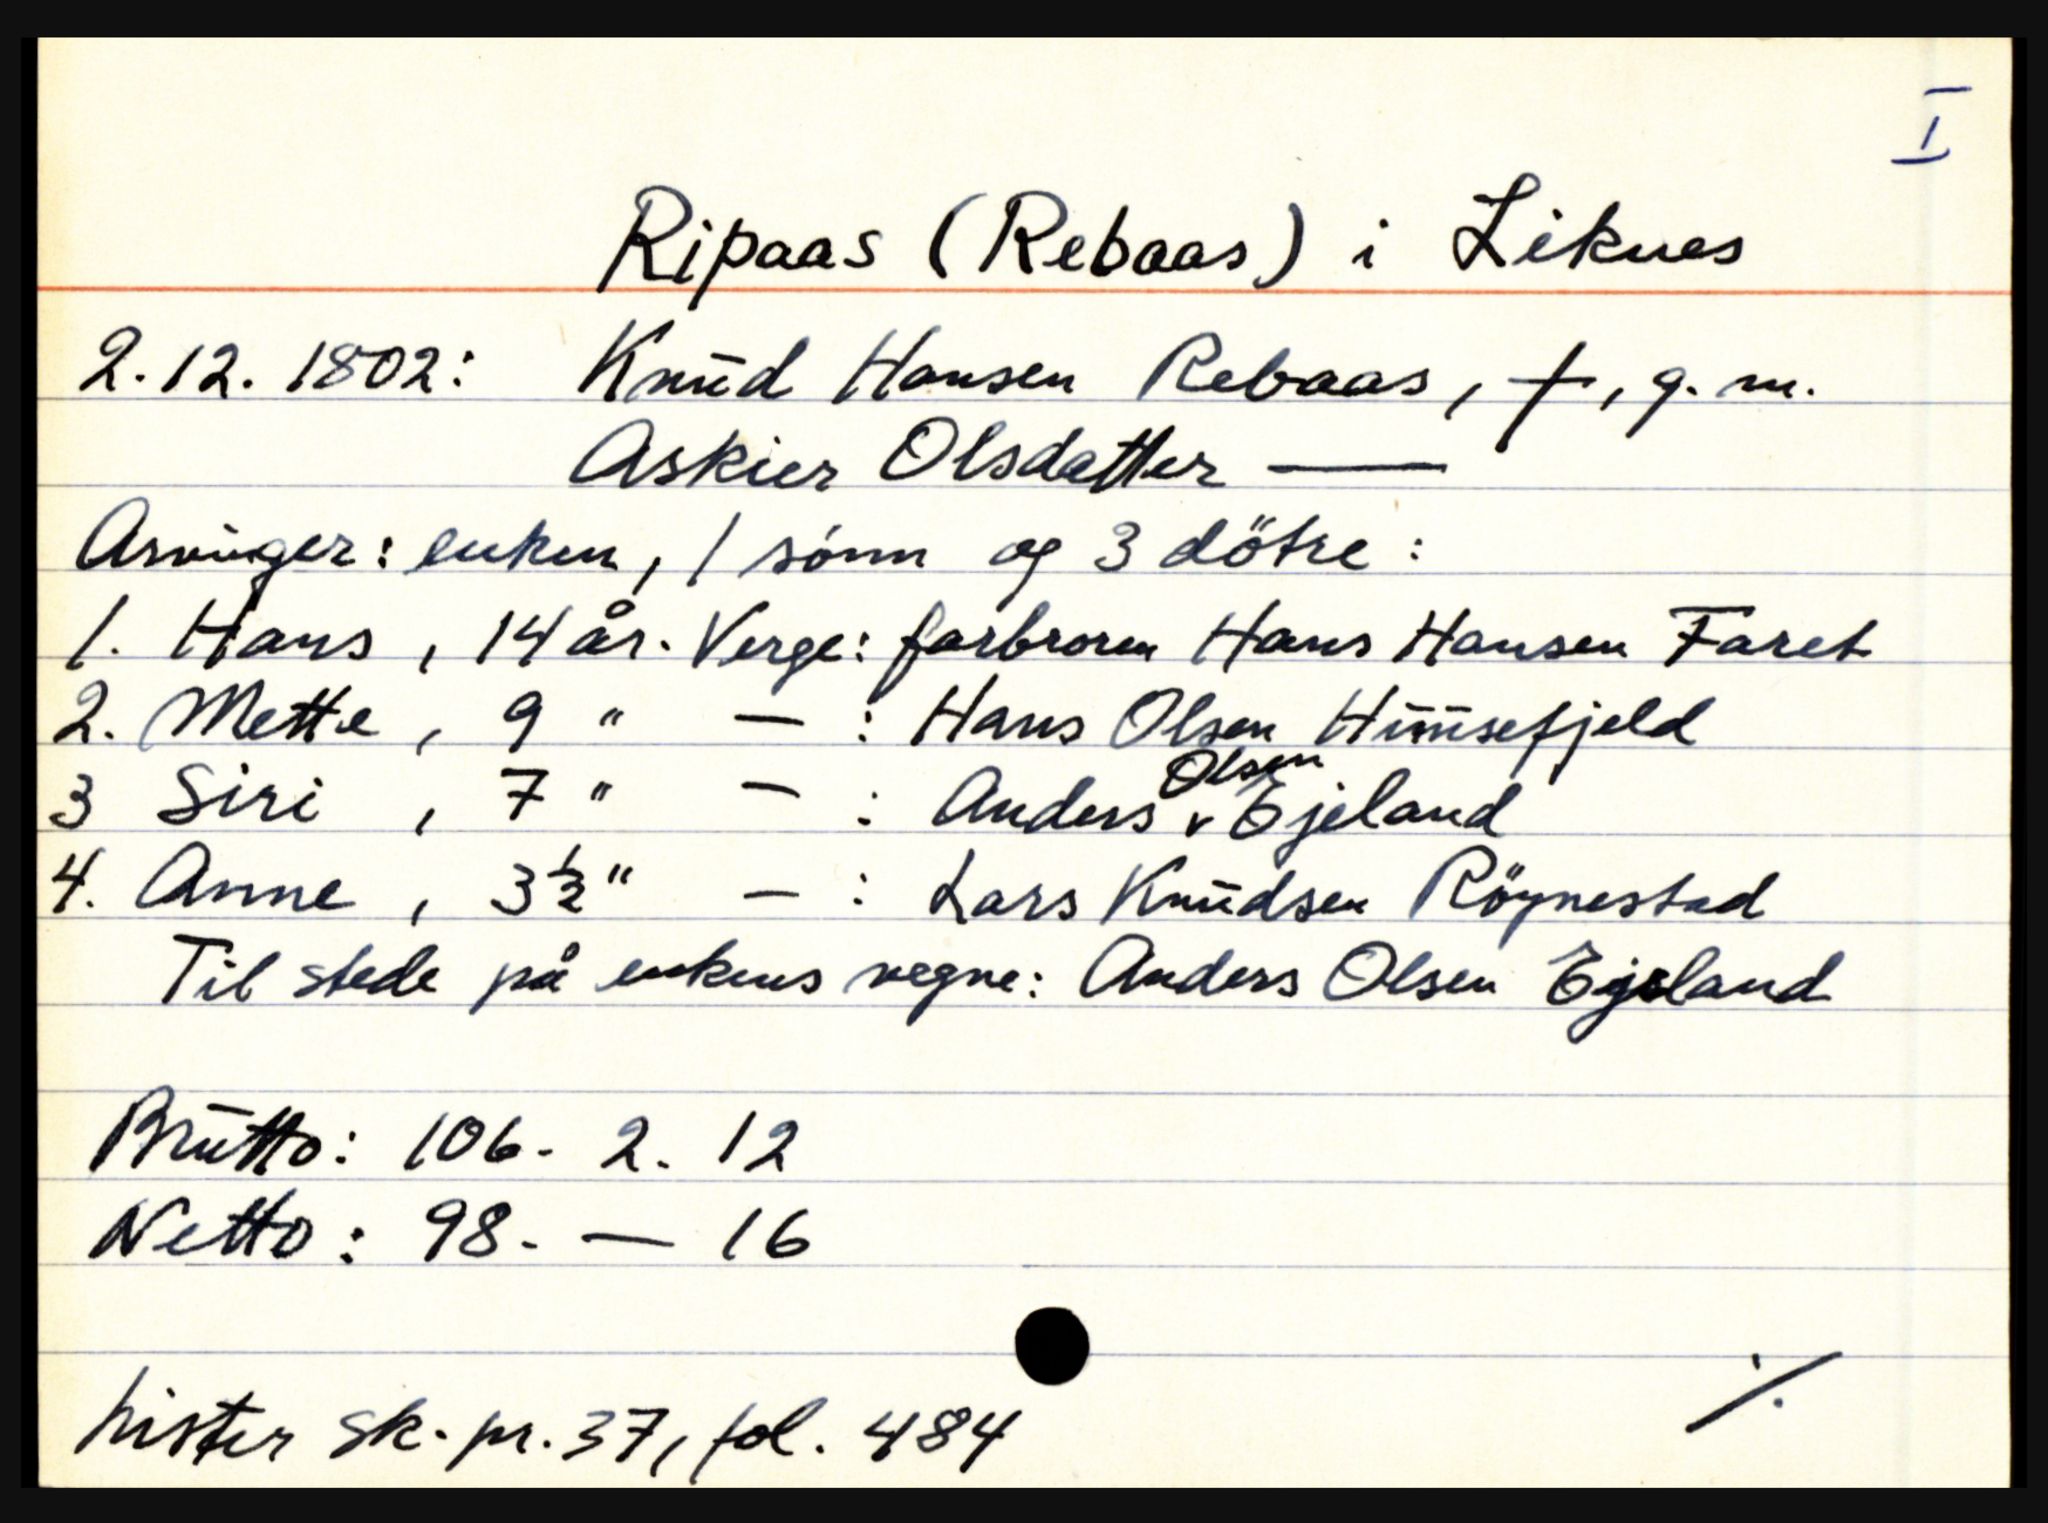 I
Ripaas (Rebaas) i Liknes
2.12.1802: Knud Hansen Rebaas, †, g. m.
Askier Olsdatter —
Arvinger: enken, 1 sønn og 3 dötre:
1. Hans, 14 år. Verge: farbroren Hans Hansen Faret
2. Mette, 9 " — : Hans Olsen Huusefjeld
Olsen
3 Siri, 7 " — : Anders v Egeland
4. Anne, 3 1/2 " — : Lars Knudsen Röynestad
Til stede på enkens vegne: Anders Olsen Egeland
Brutto: 106. 2. 12
Netto: 98. — 16
Lister sk. pr. 37, fol. 484
./.